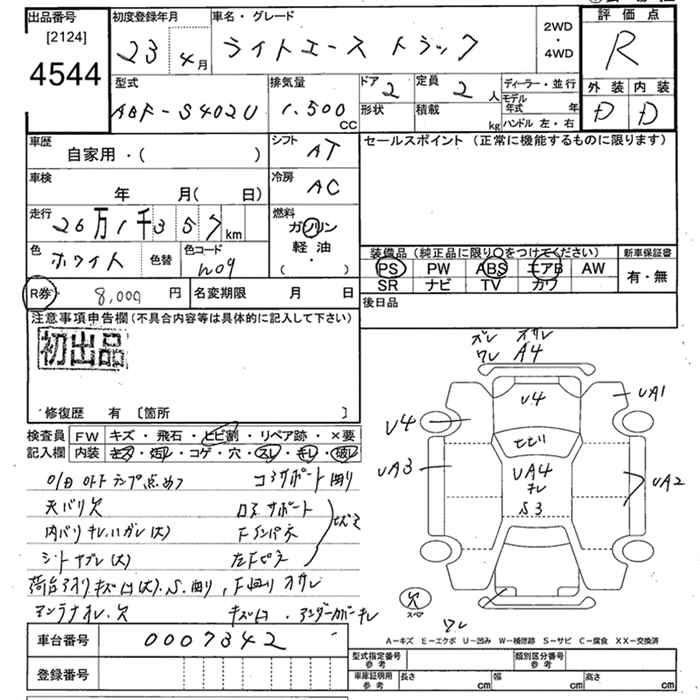 出品番号 初度登録年月 車名・グレード 2WD・4WD 評価点
[2124]
4544
23年4月 ライトエース トラック R
型式 排気量 ドア 定員 ディーラー・並行 外装 内装
ABF-S402U 1.500 CC 2 2人 モデル年式 年
形状 積載 kg ハンドル 左・右 D D
車歴 自家用・( ) シフト AT セールスポイント (正常に機能するものに限ります)
車検 年 月( 日) 冷房 AC
走行 26万1千357km 燃料 ガソリン 軽油・( )
色 ホワイト 色替 色コード W09
装備品(純正品に限り○をつけてください) 新車保証書
PS PW ABS エアB AW 有・無
SR ナビ TV カワ
R券 8,000円 名変期限 月 日 後日品
注意事項申告欄(不具合内容等は具体的に記入して下さい)
初出品
修復歴 有 [箇所 ]
検査員 FW キズ・飛石・ヒビ割・リペア跡・×要
記入欄 内装 キズ・汚レ・コゲ・穴・スレ・キレ・破レ
コアサポート曲り
天バリ欠 ロアサポート
内バリキレ,ハガレ(大) Fインパネ
シートヤブレ(大)
荷台アオリキズ凹(大).S.曲り、F廻リサレ
アンテナオレ.欠 キズ凹・アンダーカバーキレ
ズレ サレ
ワレ A4
U4
UA1
U4
ヒビリ
UA3
UA4
キレ
S3
UA2
スペア
ワレ
A-キズ E-エクボ U-凹み W-補修跡 S-サビ C-腐食 XX-交換済
車台番号 0007342
登録番号
型式指定番号 参考 類別区分番号 参考
車庫証明用 参考 長さ cm 幅 cm 高さ cm